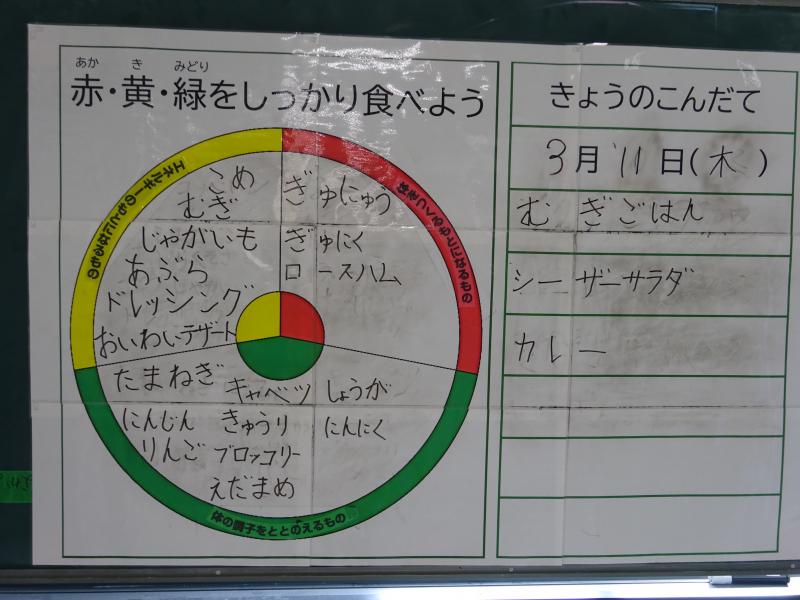 あか き みどり
赤・黄・緑をしっかり食べよう
エネルギーのもとになるもの
こめ
むぎ
じゃがいも
あぶら
ドレッシング
おいわいデザート
体をつくるもとになるもの
ぎゅにゅう
ぎゅにく
ロースハム
たまねぎ キャベツ しょうが
にんじん きゅうり にんにく
りんご ブロッコリー
えだまめ
体の調子をととのえるもの
きょうのこんだて
3月11日(木)
むぎごはん
シーザーサラダ
カレー